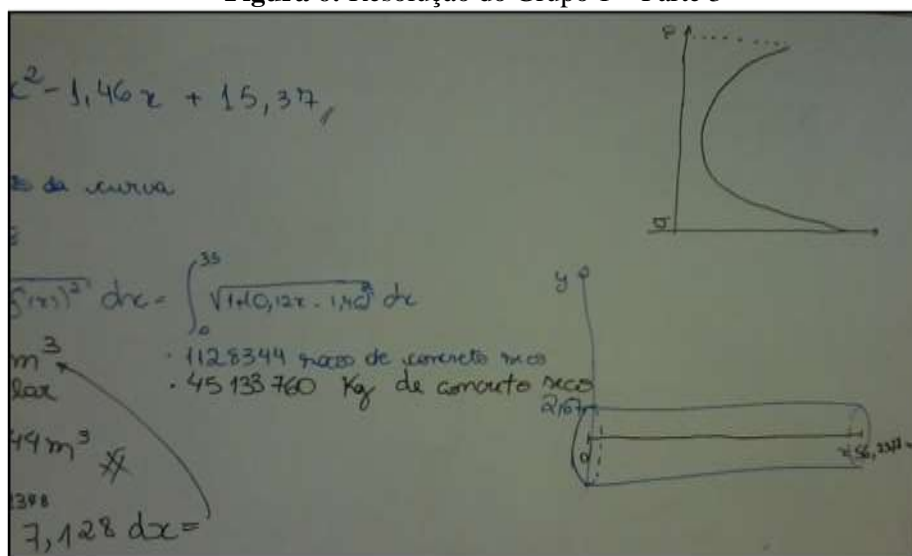 Figura 6: Resolução do Grupo 1 – Parte 3
x² - 1,46x + 15,37,
da curva
dx = ∫₀³⁵ √1+(0,12x - 1,46)² dx
m³
• 1128344 sacos de concreto seco
• 45 133 760 Kg de concreto seco
lar
44 m³
2398
7,128 dx =
P
0
y
2,67
0
56,2398